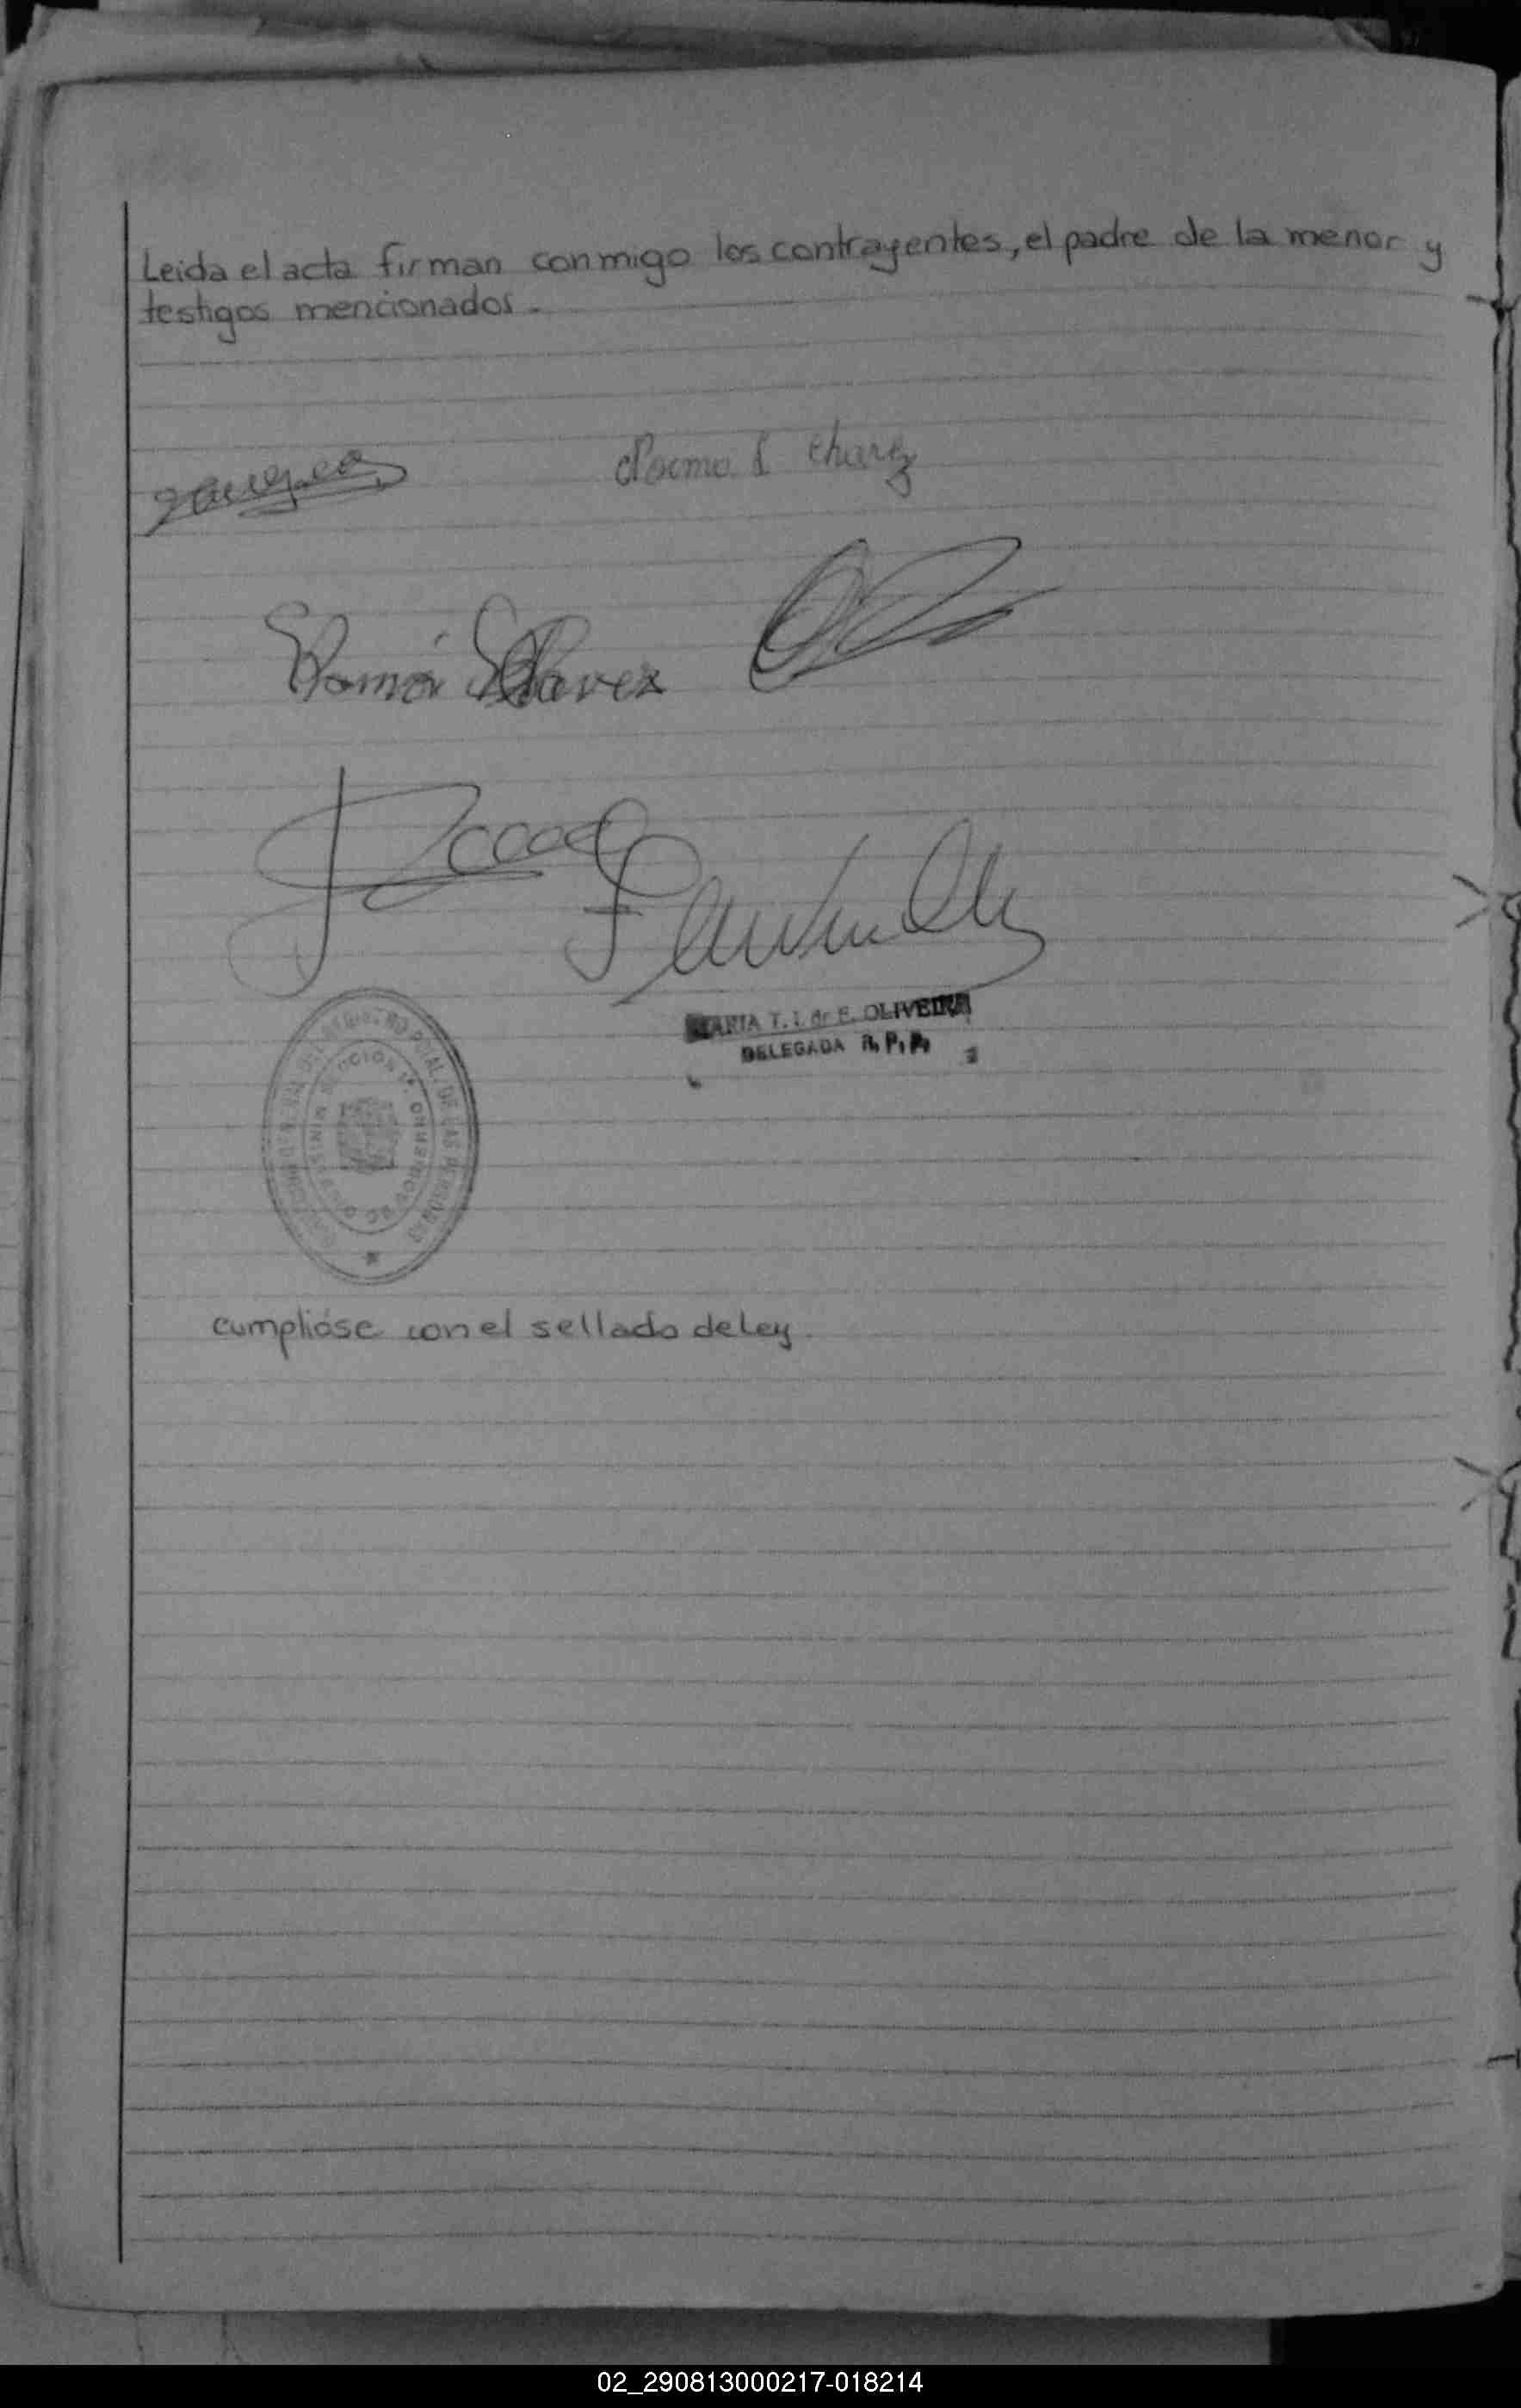 Leida el acta firman conmigo los contrayentes, el padre de la menor y
testigos mencionados.
Norma I chavez
Ramón Chavez
MARIA T. I. de E. OLIVEIRA
DELEGADA R. P. P.
REGISTRO PCIAL. DE LAS PERSONAS
cumplióse con el sellado de Ley.
02_290813000217-018214